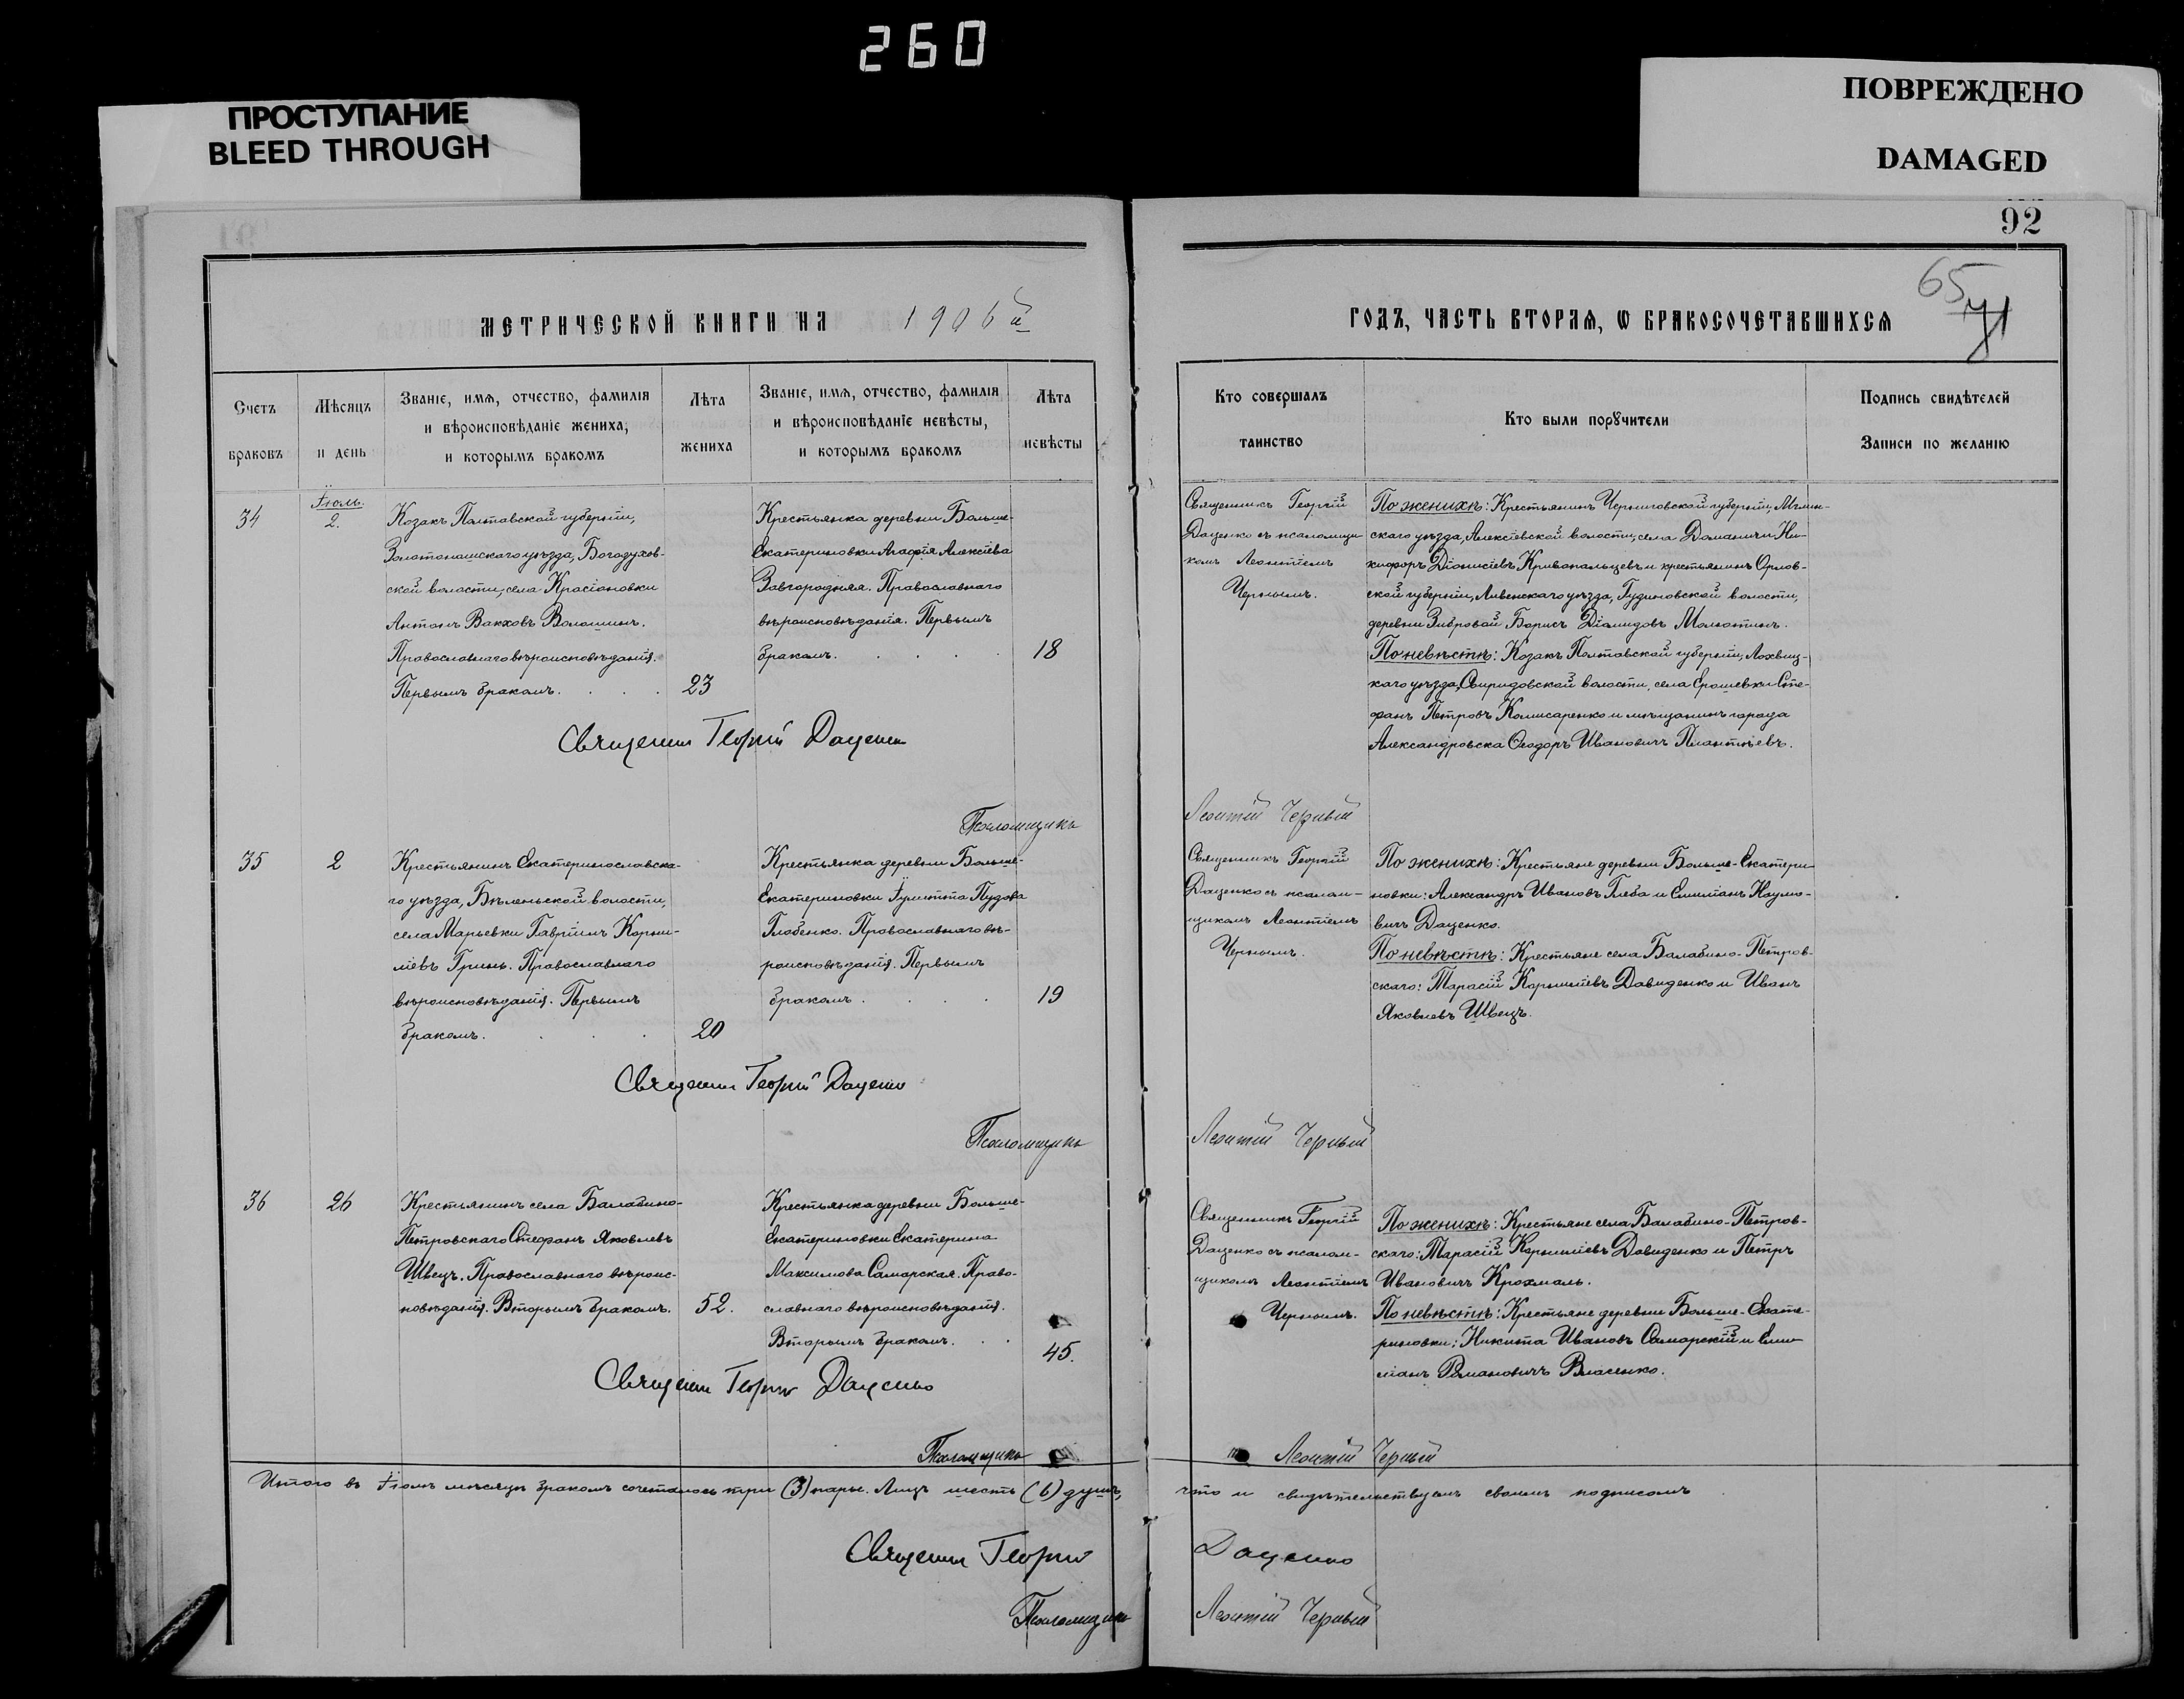 260
ПРОСТУПАНИЕ
BLEED THROUGH
ПОВРЕЖДЕНО
DAMAGED
92
65
МЕТРИЧЕСКОЙ КНИГИ НА 1906й
ГОДЪ, ЧАСТЬ ВТОРАѦ, Ѡ БРАКОСОЧЕТАВШИХСѦ
Счетъ
браковъ
Мѣсяцъ
и день
Званіе, имя, отчество, фамилія
и вѣроисповѣданіе жениха,
и которымъ бракомъ
Лѣта
жениха
Званіе, имя, отчество, фамилія
и вѣроисповѣданіе невѣсты,
и которымъ бракомъ
Лѣта
невѣсты
Кто совершалъ
таинство
Кто были порꙋчители
Подпись свидѣтелей
Записи по желанію
34
Іюль.
2.
Козакъ Полтавской губерніи,
Золотоношскаго уѣзда, Богодухов-
ской волости, села Красіоновки
Антонъ Вакховъ Волошинъ.
Православнаго вѣроисповѣданія.
Первымъ бракомъ.
23
Крестьянка деревни Больше-
Екатериновки Агафія Алексіева
Завгородняя. Православнаго
вѣроисповѣданія. Первымъ
бракомъ.
18
Священникъ Георгій
Даценко съ псаломщи-
комъ Леонтіемъ
Чернымъ.
По женихѣ: Крестьянинъ Черниговской губерніи, Мглин-
скаго уѣзда, Алексіевской волости, села Доманичи Ни-
кифоръ Діонисіевъ Кривопальцевъ и крестьянинъ Орлов-
ской губерніи, Ливенскаго уѣзда, Гудиновской волости,
деревни Зибровой Борисъ Діомидовъ Малютинъ.
По невѣстѣ: Козакъ Полтавской губерніи, Лохвиц-
каго уѣзда, Свиридовской волости, села Ерошевки Сте-
фанъ Петровъ Комисаренко и мѣщанинъ города
Александровска Ѳеодоръ Ивановичъ Плантѣевъ.
Священникъ Георгій Даценко
Псаломщикъ Леонтій Черный
35
2
Крестьянинъ Екатеринославска-
го уѣзда, Бѣленьской волости,
села Марьевки Гавріилъ Корни-
ліевъ Гринь. Православнаго
вѣроисповѣданія. Первымъ
бракомъ.
20
Крестьянка деревни Больше-
Екатериновки Іулитта Пудова
Глобенко. Православнаго вѣ-
роисповѣданія. Первымъ
бракомъ.
19
Священникъ Георгій
Даценко съ псалом-
щикомъ Леонтіемъ
Чернымъ.
По женихѣ: Крестьяне деревни Больше-Екатери-
новки: Александръ Ивановъ Глеба и Емиліанъ Наумо-
вичъ Даценко.
По невѣстѣ: Крестьяне села Балабино-Петров-
скаго: Тарасій Корниліевъ Давиденко и Иванъ
Яковлевъ Швецъ.
Священникъ Георгій Даценко
Псаломщикъ Леонтій Черный
36
26
Крестьянинъ села Балабино-
Петровскаго Стефанъ Яковлевъ
Швецъ. Православнаго вѣроис-
повѣданія. Вторымъ бракомъ.
52.
Крестьянка деревни Больше-
Екатериновки Екатерина
Максимова Самарская. Право-
славнаго вѣроисповѣданія.
Вторымъ бракомъ.
45.
Священникъ Георгій
Даценко съ псалом-
щикомъ Леонтіемъ
Чернымъ.
По женихѣ: Крестьяне села Балабино-Петров-
скаго: Тарасій Корниліевъ Давиденко и Петръ
Ивановичъ Крохмаль.
По невѣстѣ: Крестьяне деревни Больше-Екате-
риновки: Никита Ивановъ Самарскій и Еми-
ліанъ Романовичъ Власенко.
Священникъ Георгій Даценко
Псаломщикъ Леонтій Черный
Итого въ Іюлѣ мѣсяцѣ бракомъ сочеталось три (3) пары. Лицъ шесть (6) душъ, что и свидѣтельствуемъ своимъ подписомъ
Священникъ Георгій Даценко
Псаломщикъ Леонтій Черный